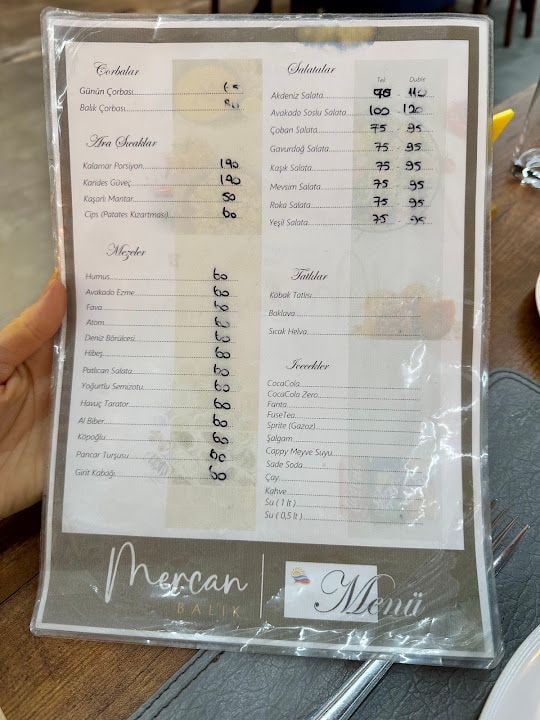 Çorbalar
Günün Çorbası
Balık Çorbası
Ara Sıcaklar
Kalamar Porsiyon 190
Karides Güveç 190
Kaşarlı Mantar 50
Cips (Patates Kızartması) 60
Mezeler
Humus 60
Avakado Ezme 60
Fava 60
Atom 60
Deniz Börülcesi 60
Hibeş 60
Patlıcan Salata 60
Yoğurtlu Semizotu 60
Havuç Tarator 60
Al Biber 60
Köpoğlu 60
Pancar Turşusu 60
Girit Kabağı 60
Salatalar
Tek Duble
Akdeniz Salata 110
Avakado Soslu Salata 100 120
Çoban Salata 75 - 95
Gavurdağ Salata 75 - 95
Kaşık Salata 75 - 95
Mevsim Salata 75 - 95
Roka Salata 75 - 95
Yeşil Salata 75 - 95
Tatlılar
Kabak Tatlısı
Baklava
Sıcak Helva
İcecekler
CocaCola
CocaCola Zero
Fanta
FuseTea
Sprite (Gazoz)
Şalgam
Cappy Meyve Suyu
Sade Soda
Çay
Kahve
Su ( 1 lt )
Su ( 0,5 lt )
Mercan
BALIK
Menü